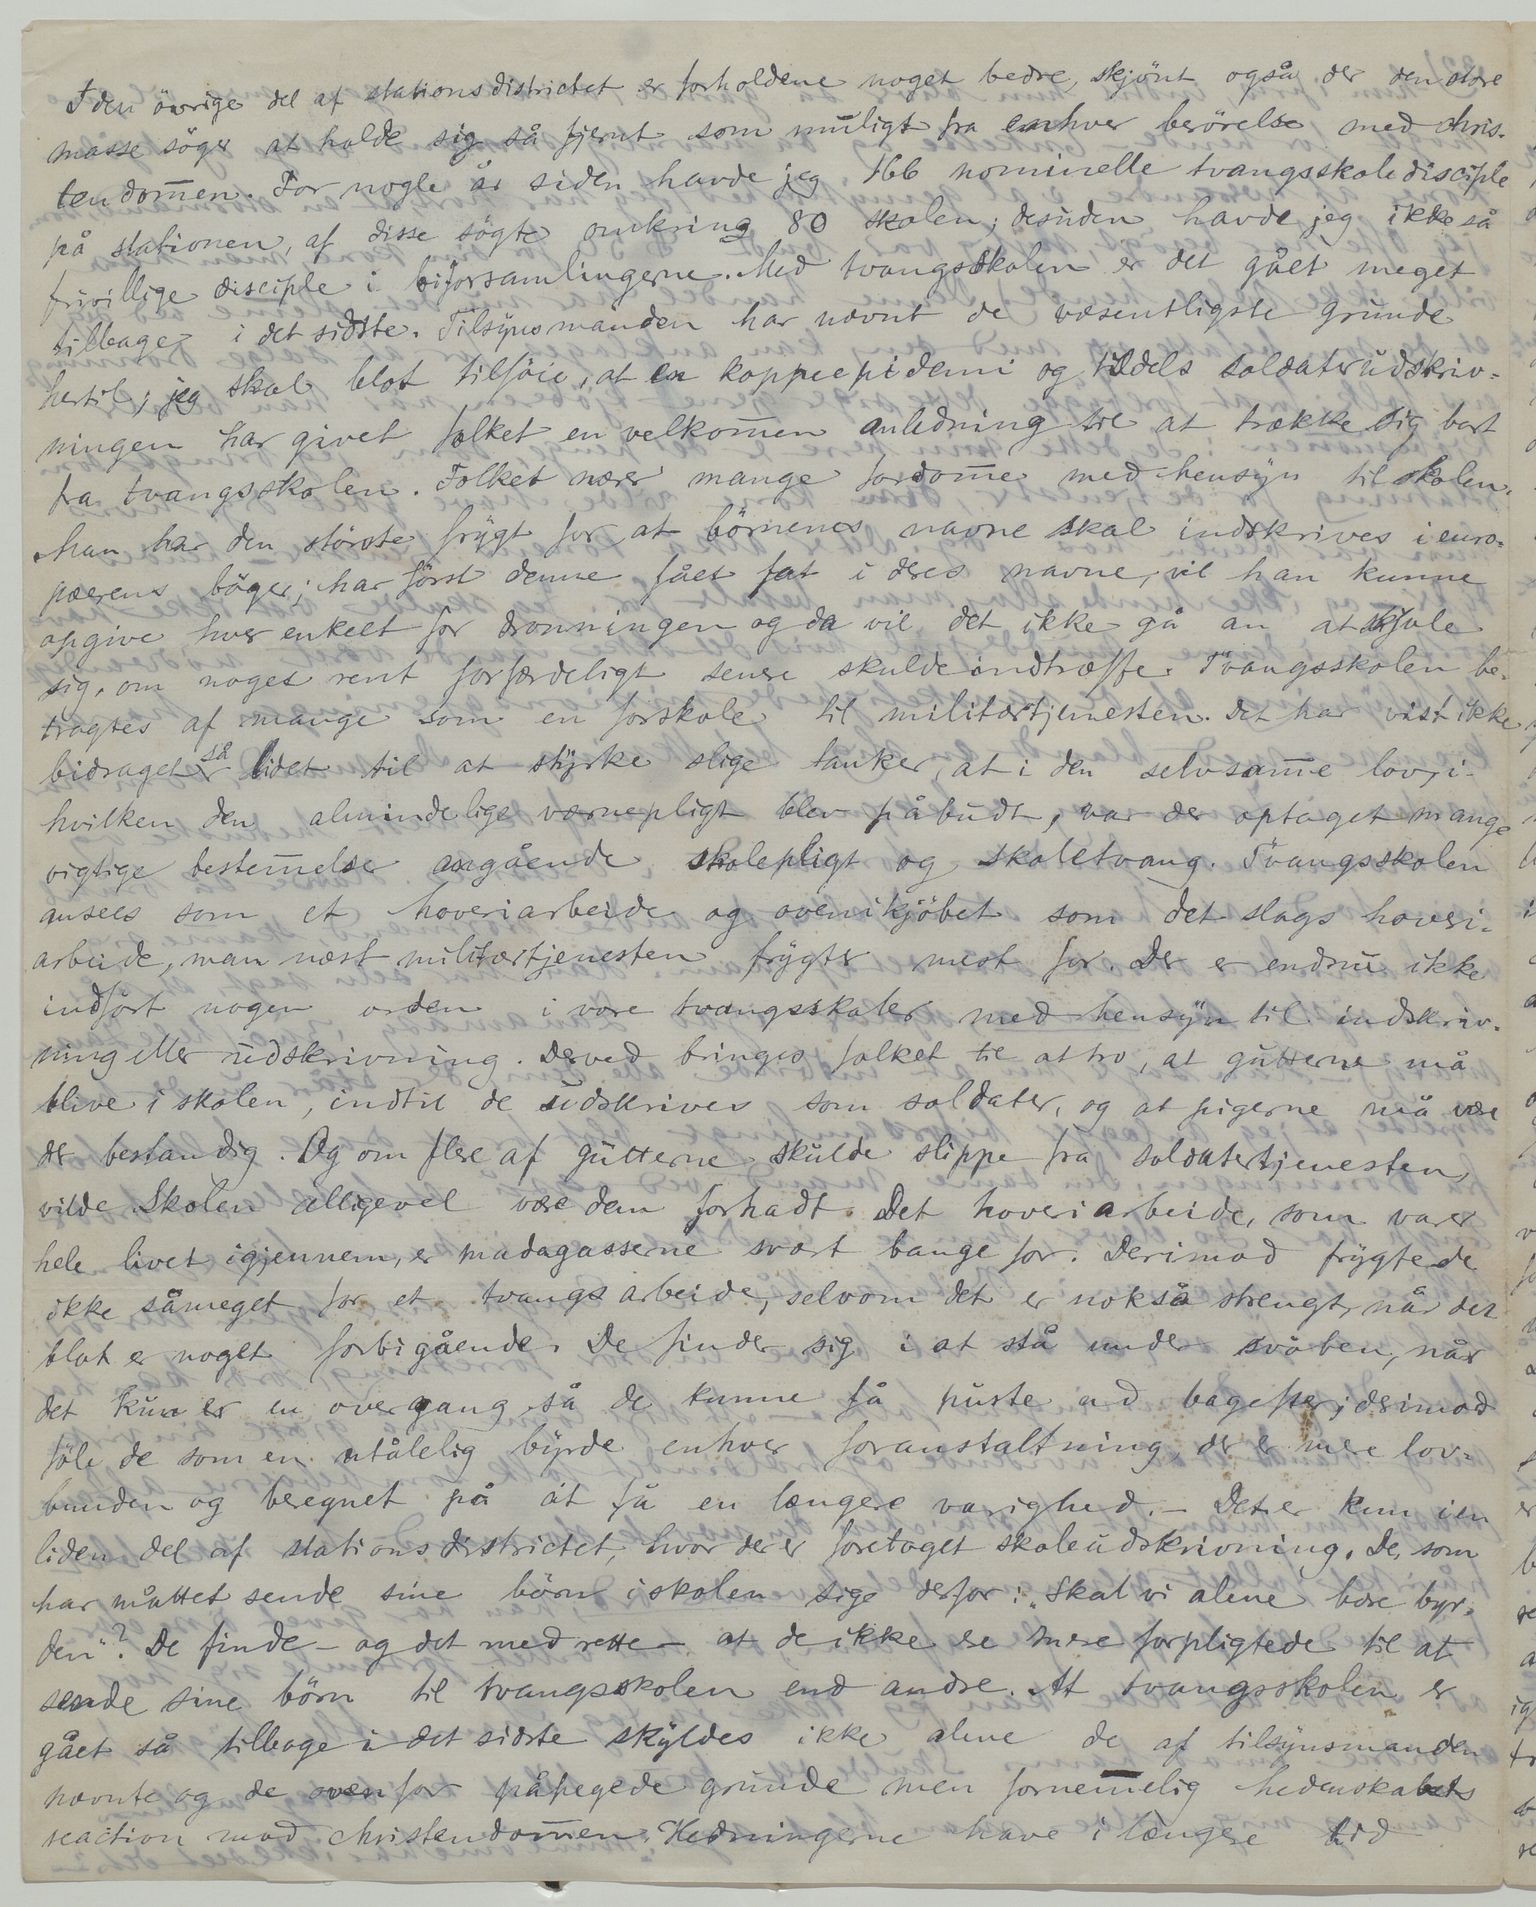 I den övrige del af stationsdistrictet er forholdene noget bedre, skjönt også der den store
masse söger at holde sig så fjernt som muligt fra enhver berörelse med chris-
tendom̅en. For nogle år siden havde jeg 166 nominelle tvangsskoledisciple
på stationen, af disse sögte omkring 80 skolen; desuden havde jeg ikke så
frivillige disciple i biforsamlingerne. Med tvangsskolen er det gået meget
tilbage i det sidste. Tilsynsmanden har nævnt de væsentligste grunde
hertil; jeg skal blot tilföie, at en koppeepidemi og tildels soldaterudskriv-
ningen har givet folket en velkom̅en anledning til at trække sig bort
fra tvangsskolen. Folket nærer mange fordom̅e med hensyn til skolen.
Man har den störste frygt for, at börnenes navne skal indskrives i euro-
pæerens böger; har först denne fået fat i deres navne, vil han kunne
opgive hver enkelt for dronningen og da vil det ikke gå an at skjule
sig, om noget rent forfærdeligt senere skulde indtræffe. Tvangsskolen be-
tragtes af mange som en forskole til militærtjenesten. Det har vist ikke
bidraget så lidet til at styrke slige tanker, at i den selvsam̅e lov, i
hvilken den almindelige værnepligt blev påbudt, var der optaget mange
vigtige bestem̅elser angående skolepligt og skoletvang. Tvangsskolen
ansees som et hoveriarbeide og ovenikjöbet som det slags hoveri-
arbeide, man næst militærtjenesten frygter mest for. Der er endnu ikke
indfört nogen orden i vore tvangsskoler med hensyn til indskriv-
ning eller udskrivning. Derved bringes folket til at tro, at gutterne må
blive i skolen, indtil de udskrives som soldater, og at pigerne må være
der bestandig. Og om flere af gutterne skulde slippe fra soldatertjenesten,
vilde skolen alligevel være dem forhadt. Det hoveriarbeide, som varer
hele livet igjennem, er madagasserne svært bange for. Derimod frygte de
ikke såmeget for et tvangsarbeide, selvom det er nokså strengt, når det
blot er noget forbigående. De finder sig i at stå under svöben, når
det kun er en overgang så de kunne få puste ud bagefter; derimod
föle de som en utålelig byrde enhver foranstaltning, der er mere lov-
bunden og beregnet på at få en længere varighed. – Det er kun i en
liden del af stationsdistrictet, hvor der er foretaget skoleudskrivning. De, som
har måttet sende sine börn i skolen sige derfor: „Skal vi alene bære byr-
den“? De finde – og det med rette – at de ikke ere mere forpligtede til at
sende sine börn til tvangsskolen end andre. At tvangsskolen er
gået så tilbage i det sidste skyldes ikke alene de af tilsynsmanden
nævnte og de ovenfor påpegede grunde men fornem̅elig hedenskabets
reaction mod christendom̅en. Hedningerne have i længere tid